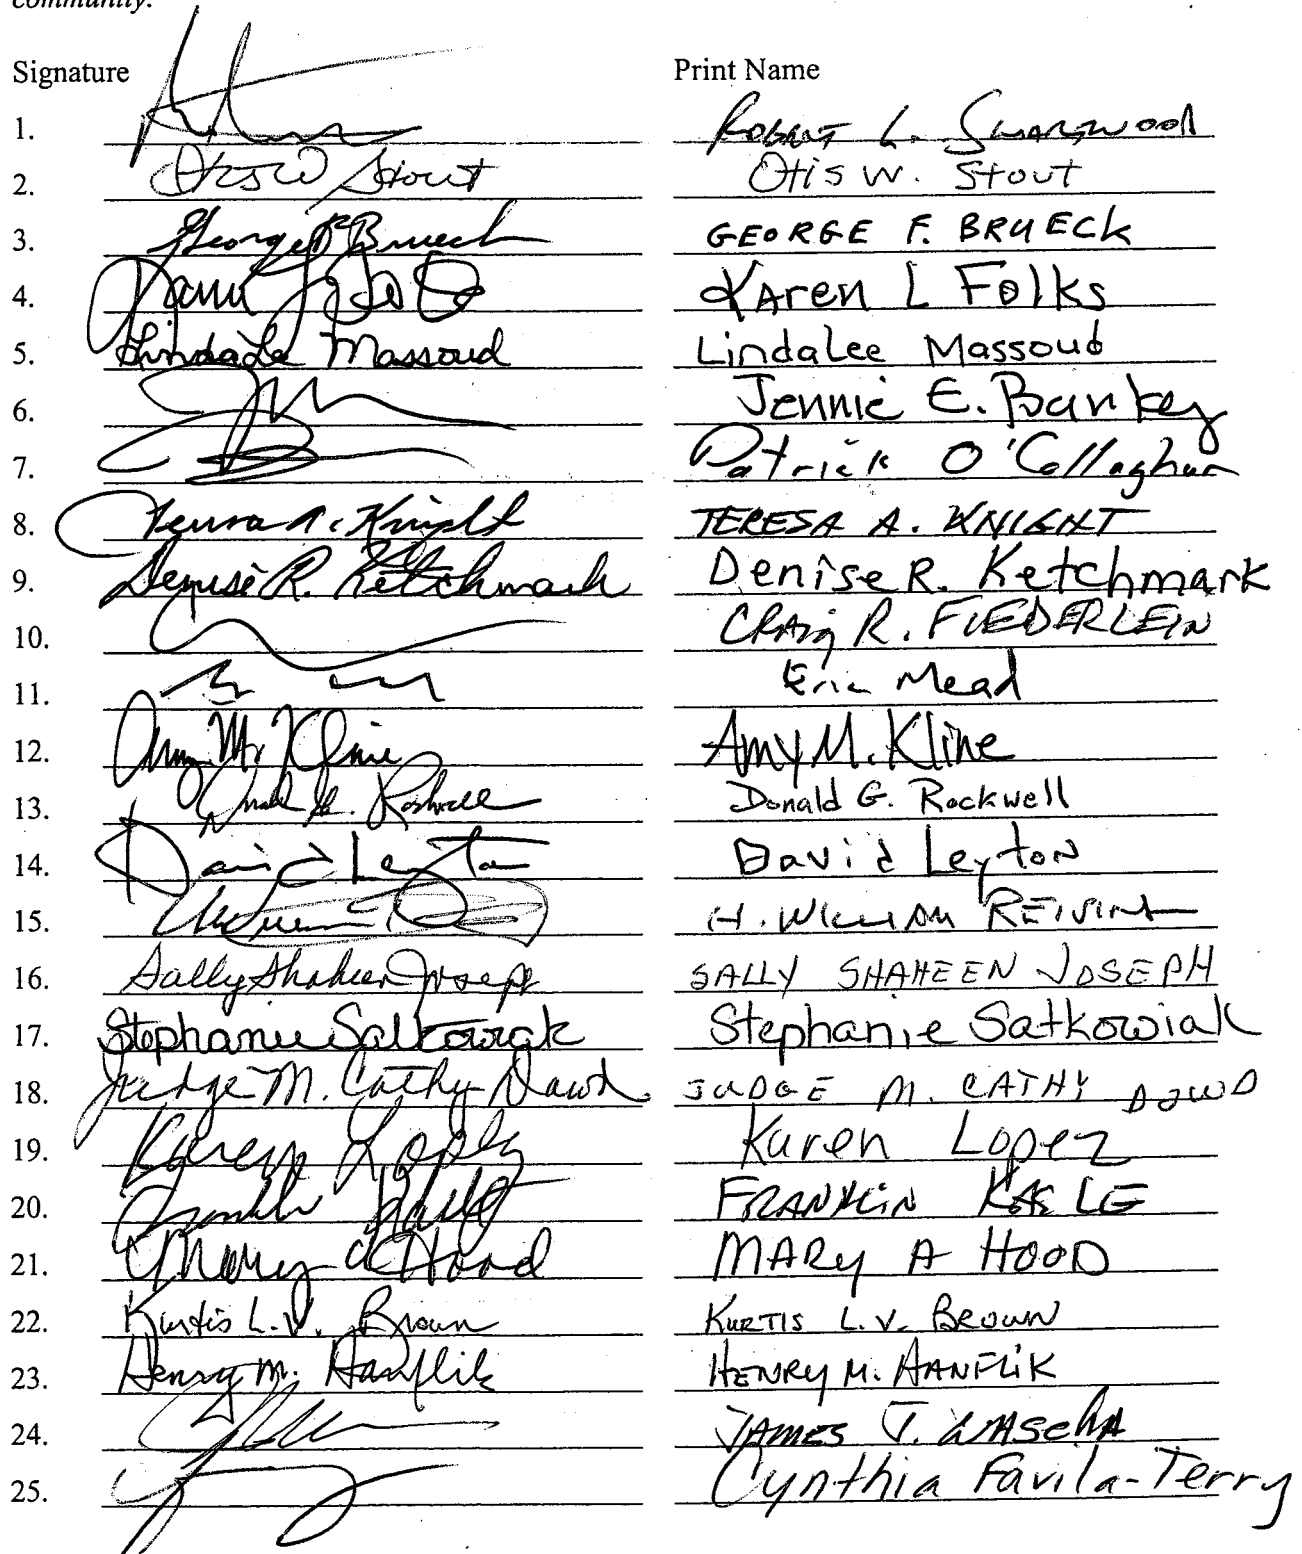 community.
Signature Print Name
1. Robert L. Swartwood
2. Otis W Stout Otis W. Stout
3. George F Brueck GEORGE F. BRUECK
4. Karen L Folks
5. Lindalee Massoud Lindalee Massoud
6. Jennie E. Barkey
7. Patrick O'Callaghan
8. Teresa A. Knight TERESA A. KNIGHT
9. Denise R. Ketchmark Denise R. Ketchmark
10. CRAIG R. FIEDERLEIN
11. Eric Mead
12. Amy M. Kline Amy M. Kline
13. Donald G. Rockwell Donald G. Rockwell
14. David Leyton David Leyton
15. H. WILLIAM
16. Sally Shaheen Joseph SALLY SHAHEEN JOSEPH
17. Stephanie Satkowiak Stephanie Satkowiak
18. Judge M. Cathy Dowd JUDGE M. CATHY DOWD
19. Karen Lopez Karen Lopez
20. FRANKLIN KASLE
21. Mary A Hood MARY A HOOD
22. Kurtis L.V. Brown KURTIS L.V. BROWN
23. Henry M. Hanflik HENRY M. HANFLIK
24. JAMES J. WASCHA
25. Cynthia Favila-Terry